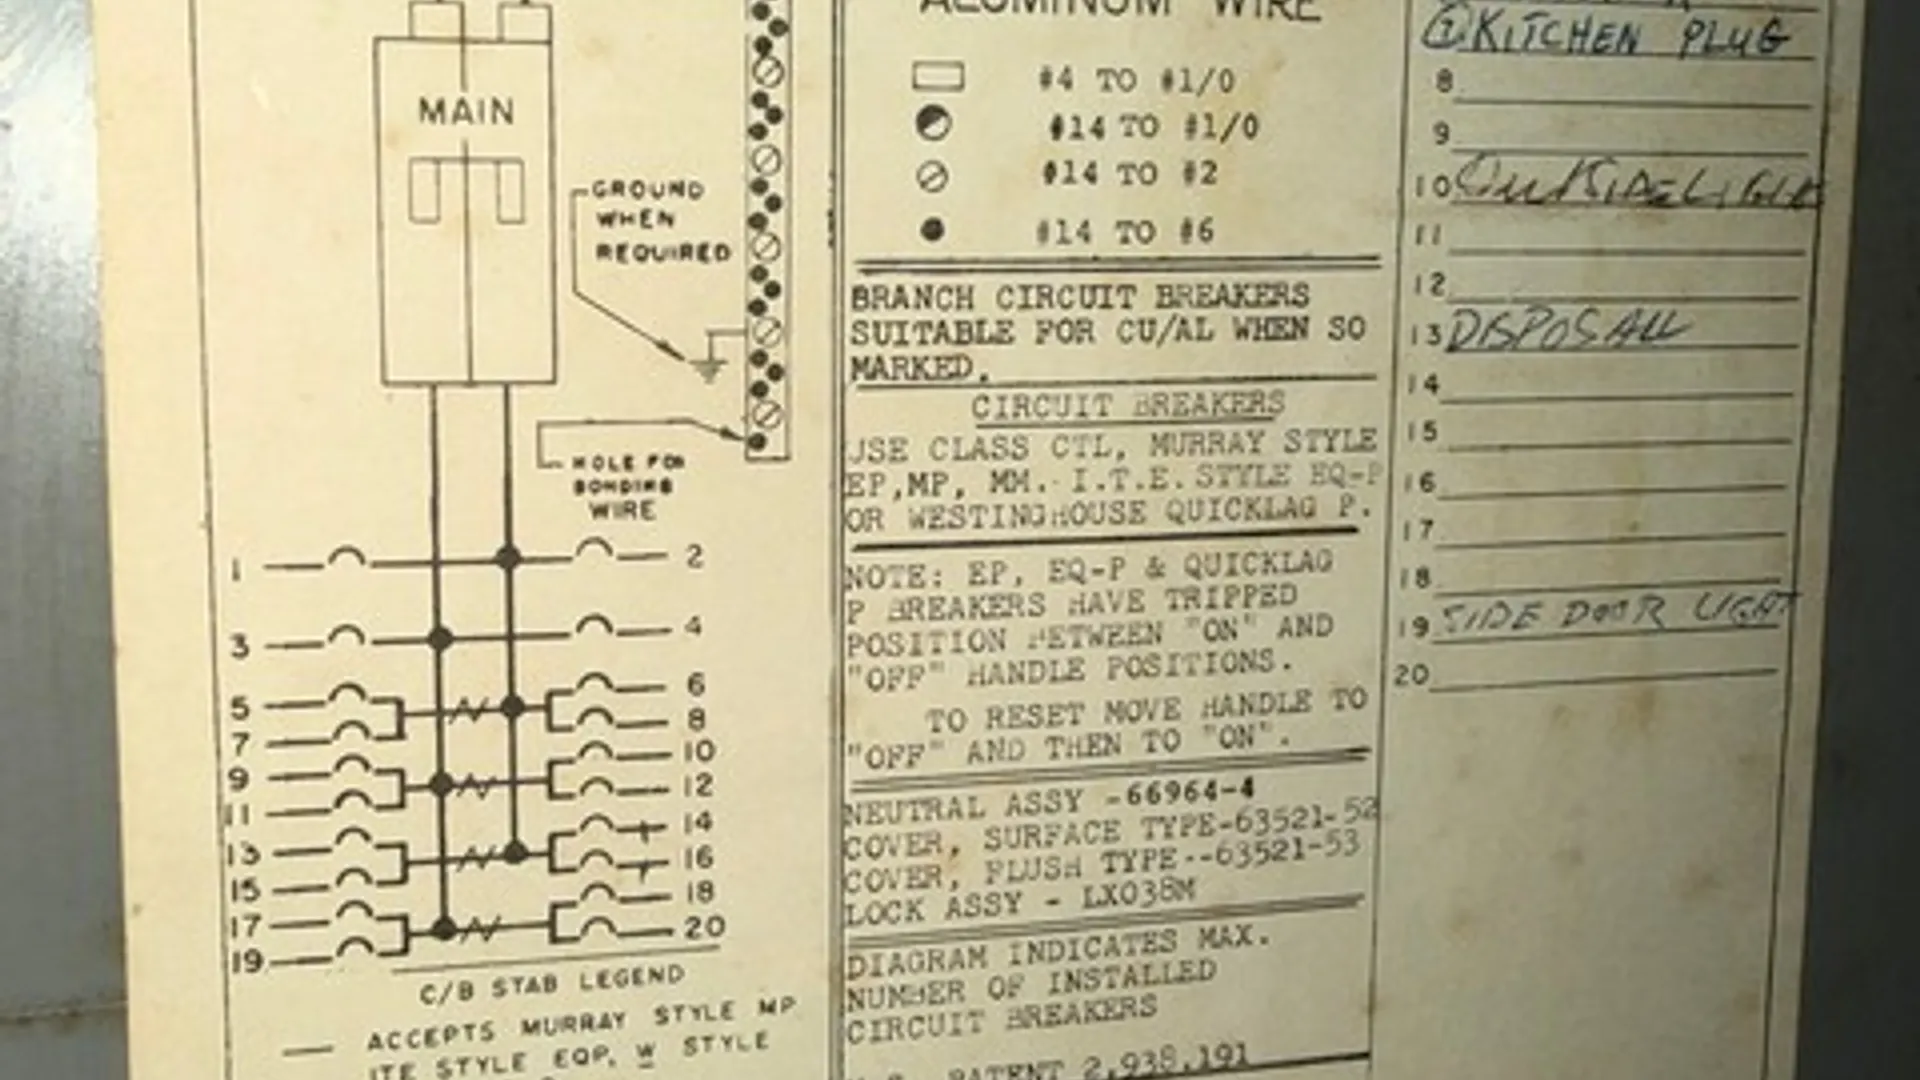 MAIN
GROUND
WHEN
REQUIRED
HOLE FOR
BONDING
WIRE
1 2
3 4
5 6
7 8
9 10
11 12
13 14
15 16
17 18
19 20
C/B STAB LEGEND
ACCEPTS MURRAY STYLE MP
ITE STYLE EQP, W STYLE
ALUMINUM WIRE
#4 TO #1/0
#14 TO #1/0
#14 TO #2
#14 TO #6
BRANCH CIRCUIT BREAKERS
SUITABLE FOR CU/AL WHEN SO
MARKED.
CIRCUIT BREAKERS
USE CLASS CTL, MURRAY STYLE
EP,MP, MM. I.T.E. STYLE EQ-P
OR WESTINGHOUSE QUICKLAG P.
NOTE: EP, EQ-P & QUICKLAG
P BREAKERS HAVE TRIPPED
POSITION BETWEEN "ON" AND
"OFF" HANDLE POSITIONS.
TO RESET MOVE HANDLE TO
"OFF" AND THEN TO "ON".
NEUTRAL ASSY -66964-4
COVER, SURFACE TYPE-63521-52
COVER, FLUSH TYPE--63521-53
LOCK ASSY - LX038M
DIAGRAM INDICATES MAX.
NUMBER OF INSTALLED
CIRCUIT BREAKERS
PATENT 2,938,191
7 KITCHEN PLUG
8
9
10 OUTSIDE LIGHT
11
12
13 DISPOSALL
14
15
16
17
18
19 SIDE DOOR LIGHT
20